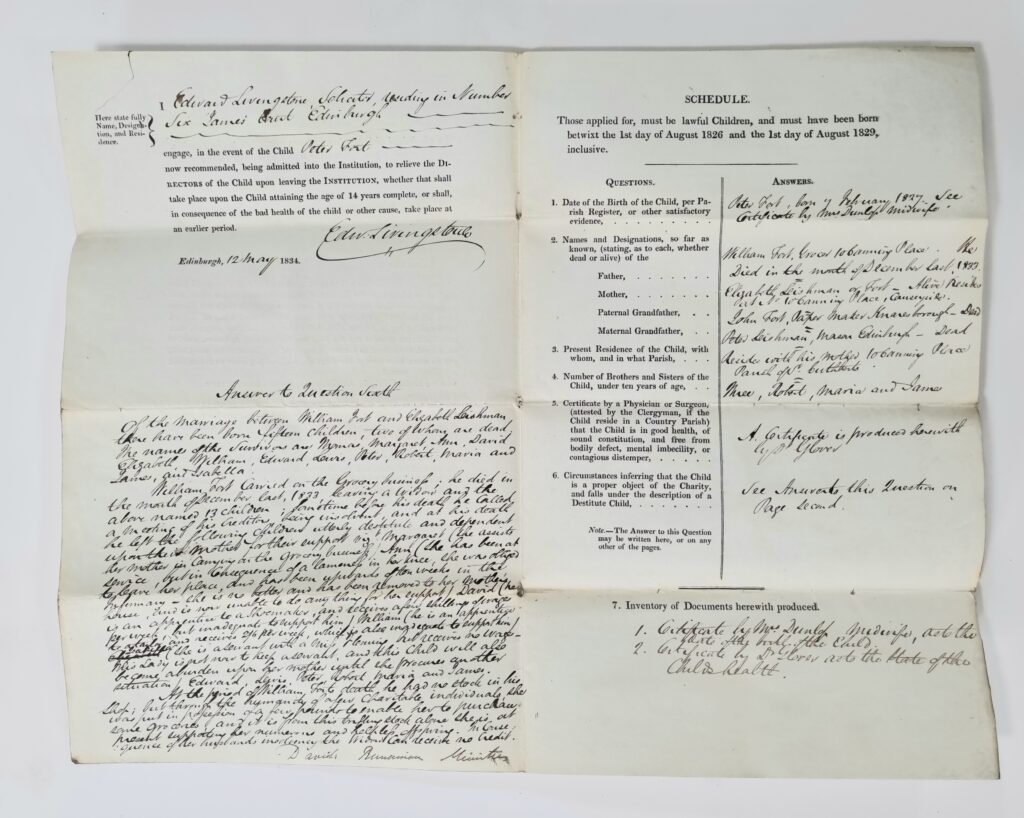 Here state fully
Name, Designa-
tion, and Resi-
dence.
I Edward Livingstone, Solicitor, residing in Number
Six James Court Edinburgh
engage, in the event of the Child Peter Fort
now recommended, being admitted into the Institution, to relieve the Di-
rectors of the Child upon leaving the Institution, whether that shall
take place upon the Child attaining the age of 14 years complete, or shall,
in consequence of the bad health of the child or other cause, take place at
an earlier period.
Edw. Livingstone
Edinburgh, 12 May 1834.
Answer to Question Sixth
Of the marriage between William Fort and Elizabeth Leishman,
there have been born fifteen children, two of whom are dead,
The names of the Survivors are Margaret, Ann, David
Elizabeth, William, Edward, Lewis, Peter, Robert, Maria and
James, and Isabella.
William Fort Carried on the Grocery business; he died in
the month of December last, 1833, leaving a widow and the
above named 13 children; sometime before his death he called
a meeting of his Creditors, being insolvent, and at his death
he left the following Children utterly destitute and dependent
upon their Mother for their support viz Margaret (she assists
her mother in Carrying on the Grocery business), Ann (she has been at
service, but in Consequence of a lameness in her knee, she was obliged
to leave her place, and has been upwards of ten weeks in the
Infirmary – she is no better and has been removed to her Mothers
house and is now unable to do any thing for her support) David (he
is an apprentice to a Shoemaker, and receives a few shillings of wages
per week, but inadequate to support him) William (he is an apprentice
and receives per week, which is also inadequate to support him)
(she is a servant with a Mrs but receives no wages
This Lady is not now to keep a servant, and this Child will also
become a burden upon her mother until she procures another
situation) Edward, Lewis, Peter, Robert Maria and James.
At the period of William Forts death, he had no stock in his
Shop; but through the humanity of a few Charitable individuals she
was put in possession of a few pounds to enable her to purchase
some groceries, and it is from this trifling stock alone she is, at
present supporting her numerous and helpless offspring. In Conse-
quence of her husbands insolvency the Widow Can receive no Credit.
David Runciman Minister
SCHEDULE.
Those applied for, must be lawful Children, and must have been born
betwixt the 1st day of August 1826 and the 1st day of August 1829,
inclusive.
Questions.
Answers.
1. Date of the Birth of the Child, per Pa-
rish Register, or other satisfactory
evidence, . . . . . . . .
Peter Fort, born 7 February 1827. See
Certificate by Mrs Dunlop Midwife.
2. Names and Designations, so far as
known, (stating, as to each, whether
dead or alive) of the
Father, . . . . . . .
William Fort, Grocer 10 Canning Place. He
Died in the month of December last, 1833.
Mother, . . . . . . .
Elizabeth Leishman or Fort – Alive Resides
at No. 10 Canning Place, Causeyside.
Paternal Grandfather, . .
John Fort, Paper Maker Knaresborough – Dead
Maternal Grandfather, . .
Peter Leishman, Mason Edinburgh – Dead
3. Present Residence of the Child, with
whom, and in what Parish, . . .
Resides with his mother 10 Canning Place
Parish of St. Cuthberts
4. Number of Brothers and Sisters of the
Child, under ten years of age, . . .
Three, Robert, Maria and James
5. Certificate by a Physician or Surgeon,
(attested by the Clergyman, if the
Child reside in a Country Parish)
that the Child is in good health, of
sound constitution, and free from
bodily defect, mental imbecility, or
contagious distemper, . . . . .
A Certificate is produced herewith
by Dr Glover
6. Circumstances inferring that the Child
is a proper object of the Charity,
and falls under the description of a
Destitute Child, . . . . . . .
See Answer to this Question on
Page second.
Note.—The Answer to this Question
may be written here, or on any
other of the pages.
7. Inventory of Documents herewith produced.
1. Certificate by Mrs Dunlop Midwife, as to the
date of the birth of the Child.
2. Certificate by Dr Glover as to the State of the
Childs health.